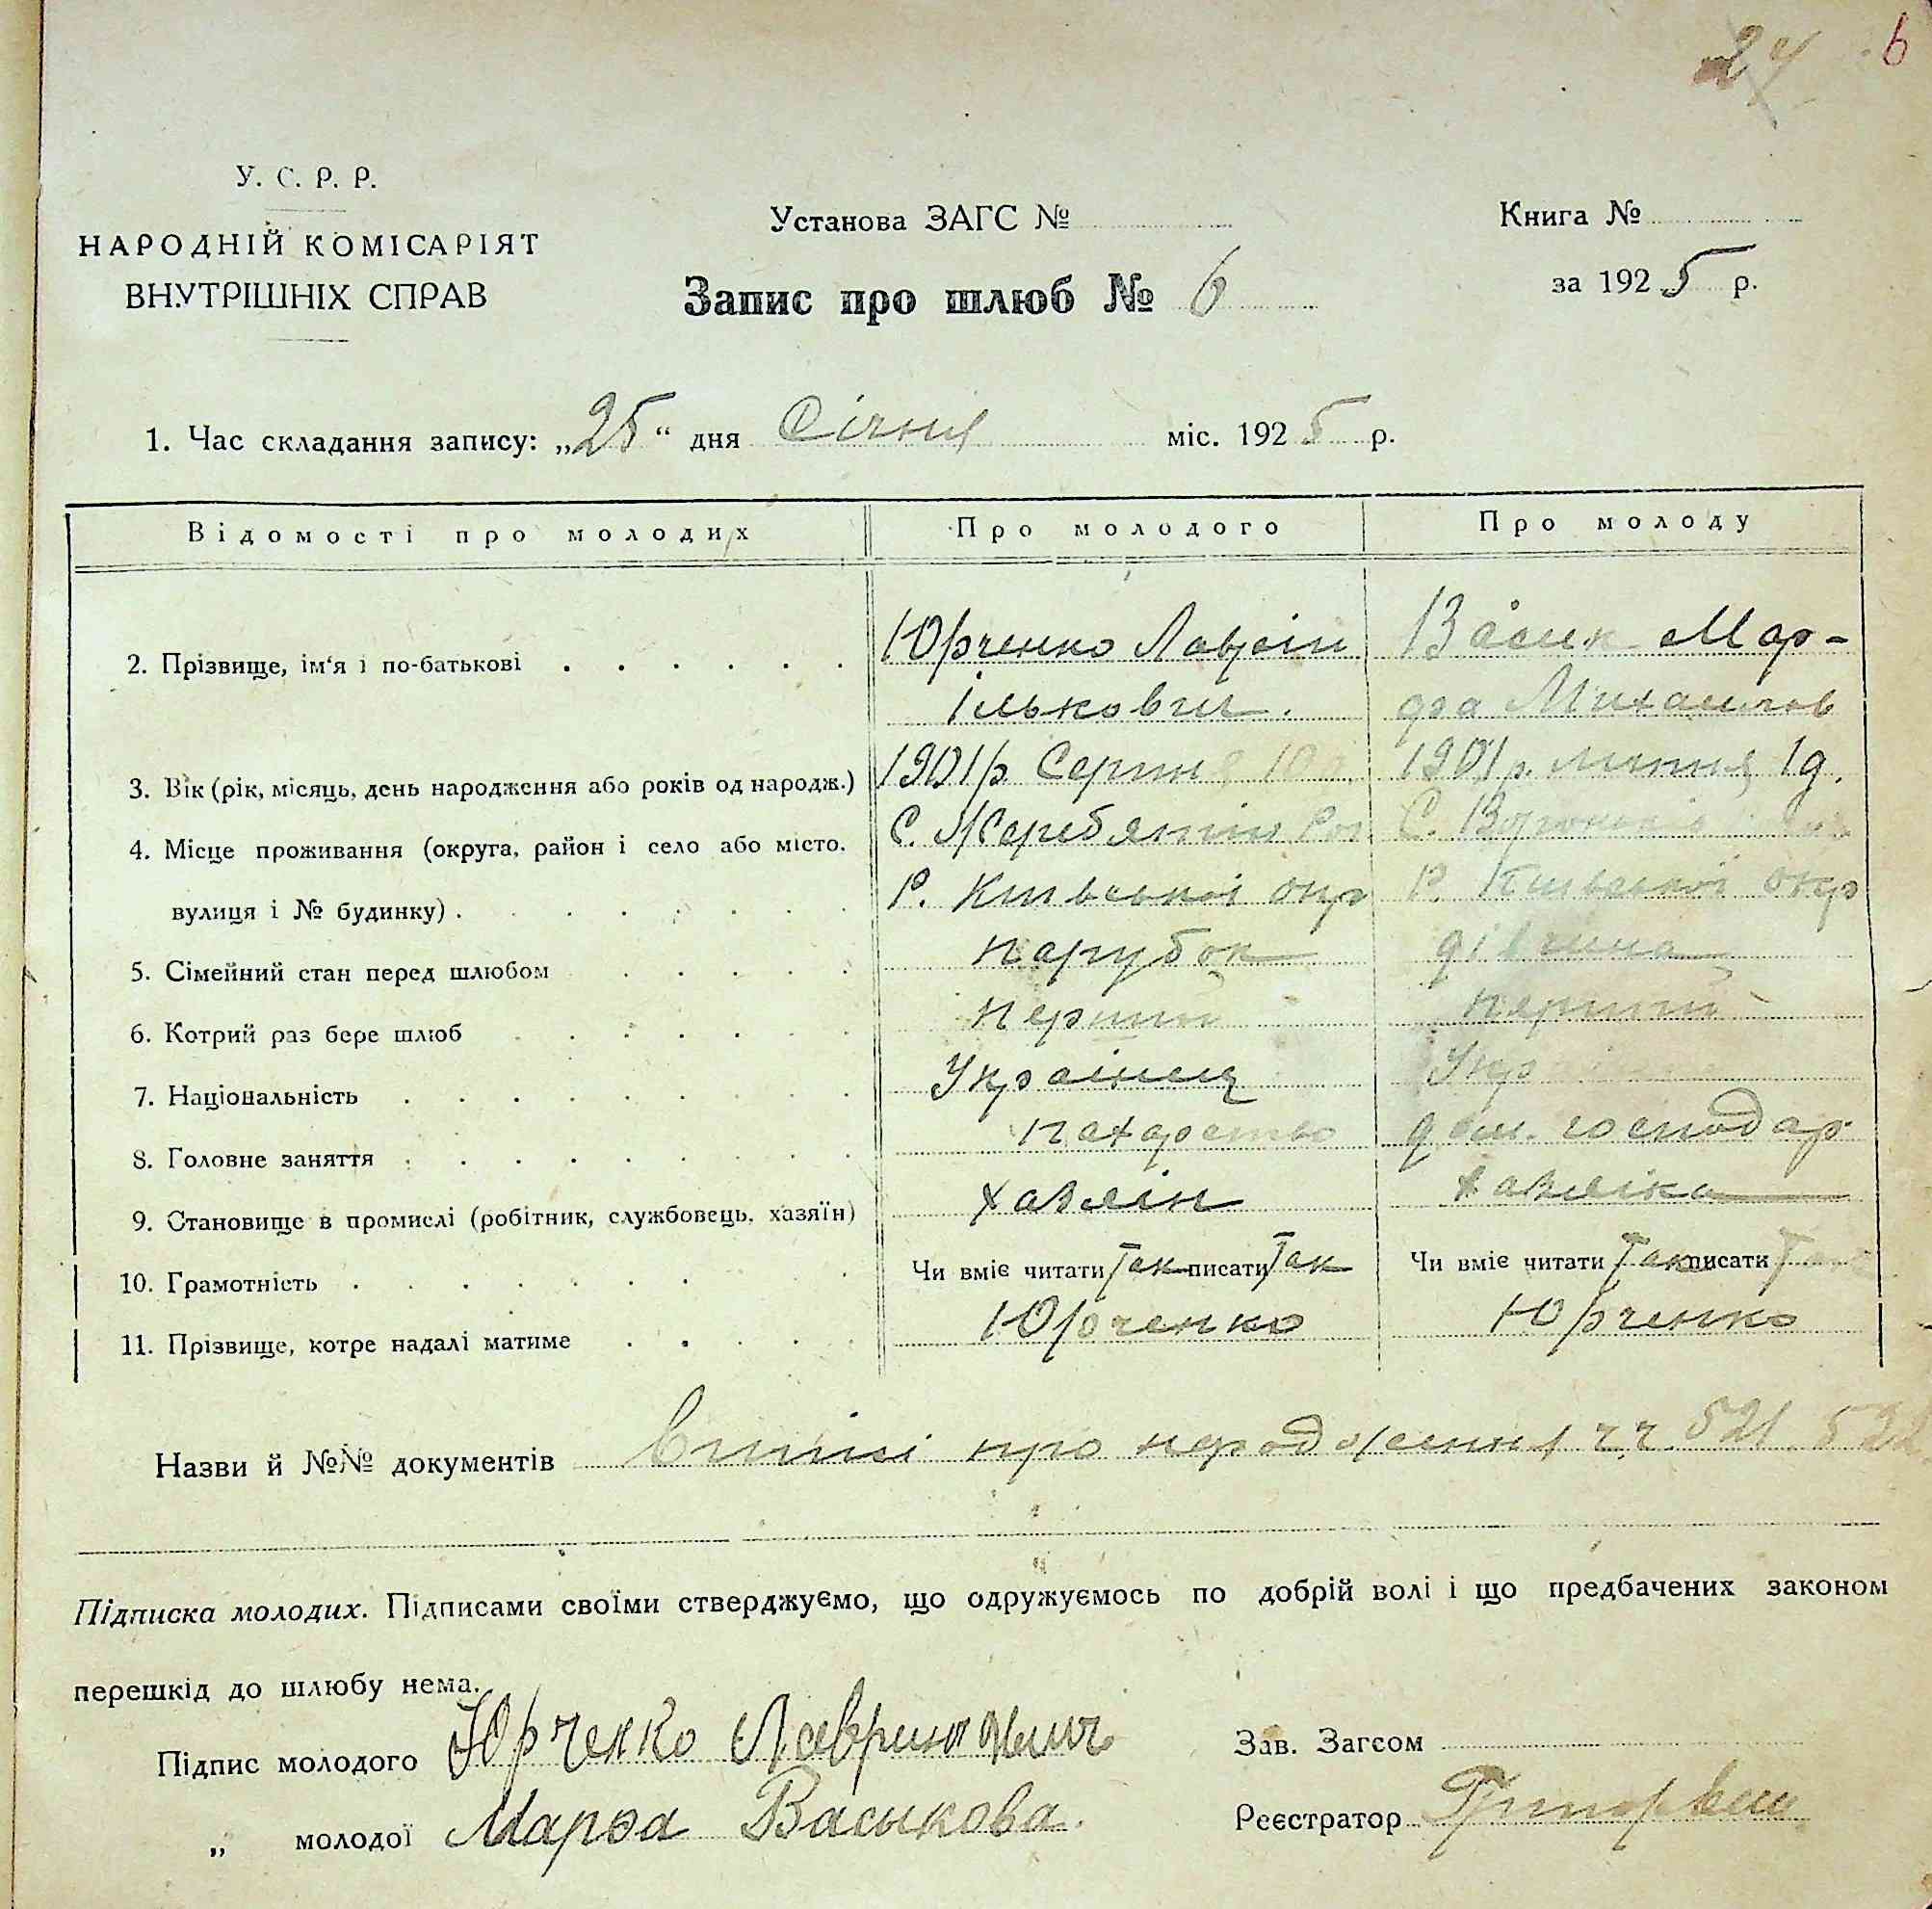 24 6
У. С. Р. Р.
НАРОДНІЙ КОМІСАРІЯТ
ВНУТРІШНІХ СПРАВ
Установа ЗАГС №
Книга №
Запис про шлюб № 6
за 1925 р.
1. Час складання запису: „25“ дня Січня міс. 1925 р.
Відомості про молодих Про молодого Про молоду
2. Прізвище, ім‘я і по-батькові Юрченко Лаврін Васик Мар-
Ількович. фа Михайлов
3. Вік (рік, місяць, день народження або років од народж.) 1901 р. Серпня 10 д. 1901 р. липня 1 д.
4. Місце проживання (округа, район і село або місто, С. Жеребятин С.
вулиця і № будинку) Р. Київської окр Р. Київської окр
5. Сімейний стан перед шлюбом парубок дівчина
6. Котрий раз бере шлюб перший перший
7. Національність Українець Укр
8. Головне заняття пахарство дом. господар
9. Становище в промислі (робітник, службовець, хазяїн) хазяїн хазяїка
10. Грамотність Чи вміє читати Так писати Так Чи вміє читати Так писати Так
11. Прізвище, котре надалі матиме Юрченко Юрченко
Назви й №№ документів Виписі про народження ч.ч. 521. 522
Підписка молодих. Підписами своїми стверджуємо, що одружуємось по добрій волі і що предбачених законом
перешкід до шлюбу нема.
Підпис молодого Юрченко Лаврин
Зав. Загсом
„ молодої Марфа Васькова.
Реєстратор